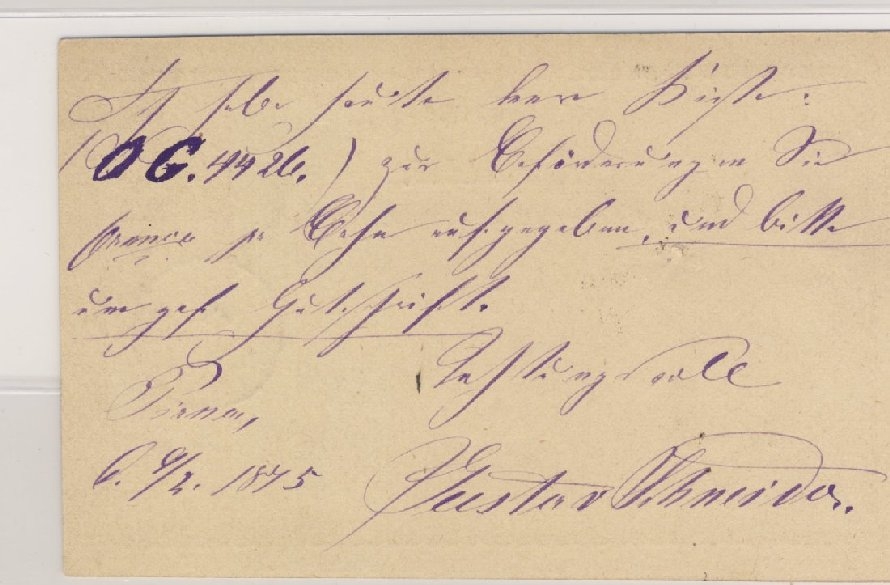 Ich habe heute leere Kiste:
(OG. 4426.) zur Beförderung an Sie
franco pr Bahn aufgegeben, und bitte
um gef. Gutschrift.
Achtungsvoll
Pirna,
d. 9/2. 1875 Gustav Schneider.